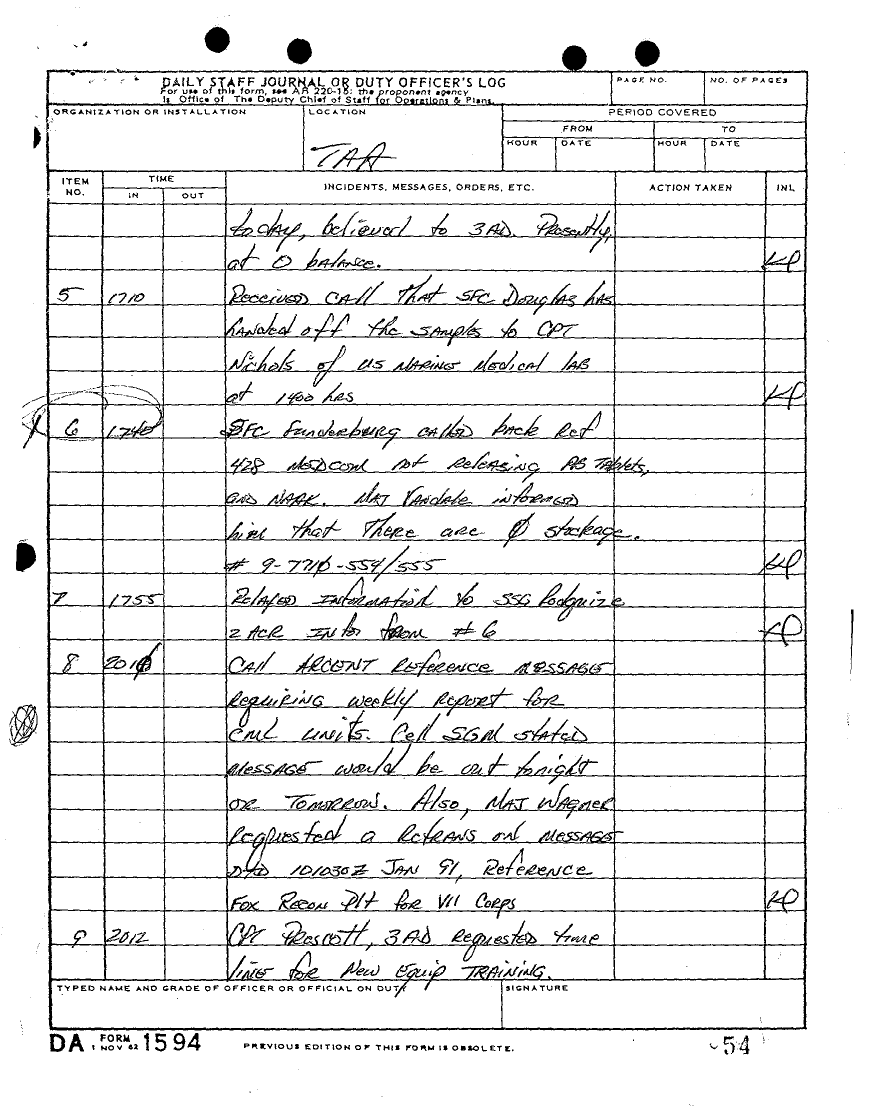 DAILY STAFF JOURNAL OR DUTY OFFICER'S LOG
For use of this form, see AR 220-15; the proponent agency
is Office of The Deputy Chief of Staff for Operations & Plans.
PAGE NO.
NO. OF PAGES
ORGANIZATION OR INSTALLATION
LOCATION
TAA
PERIOD COVERED
FROM
TO
HOUR DATE HOUR DATE
ITEM NO.
TIME
IN OUT
INCIDENTS, MESSAGES, ORDERS, ETC.
ACTION TAKEN
INL
today, believed to 3AD. Presently,
at 0 balance.
5 1710 Received call that SFC Douglas has
handed off the samples to CPT
Nichols of US Marine Medical lab
at 1400 hrs
6 1740 SFC Funderburg called back Ref
428 MEDCOM not releasing PB Tablets,
and NAAK. MAJ Vandale informed
him that there are 0 stockage.
# 9-7710-554/555
7 1755 Relayed information to SSG
2 ACR Info from #6
8 2010 Call ARCENT Reference message
requiring weekly report for
CML units. Cell SGM stated
message would be out tonight
or tomorrow. Also, MAJ Wagner
requested a retrans on message
DTG 101030Z JAN 91, Reference
Fox Recon Plt for VII Corps
9 2012 CPT Prescott, 3AD requested time
line for New Equip Training.
TYPED NAME AND GRADE OF OFFICER OR OFFICIAL ON DUTY
SIGNATURE
DA FORM 1 NOV 62 1594
PREVIOUS EDITION OF THIS FORM IS OBSOLETE.
54